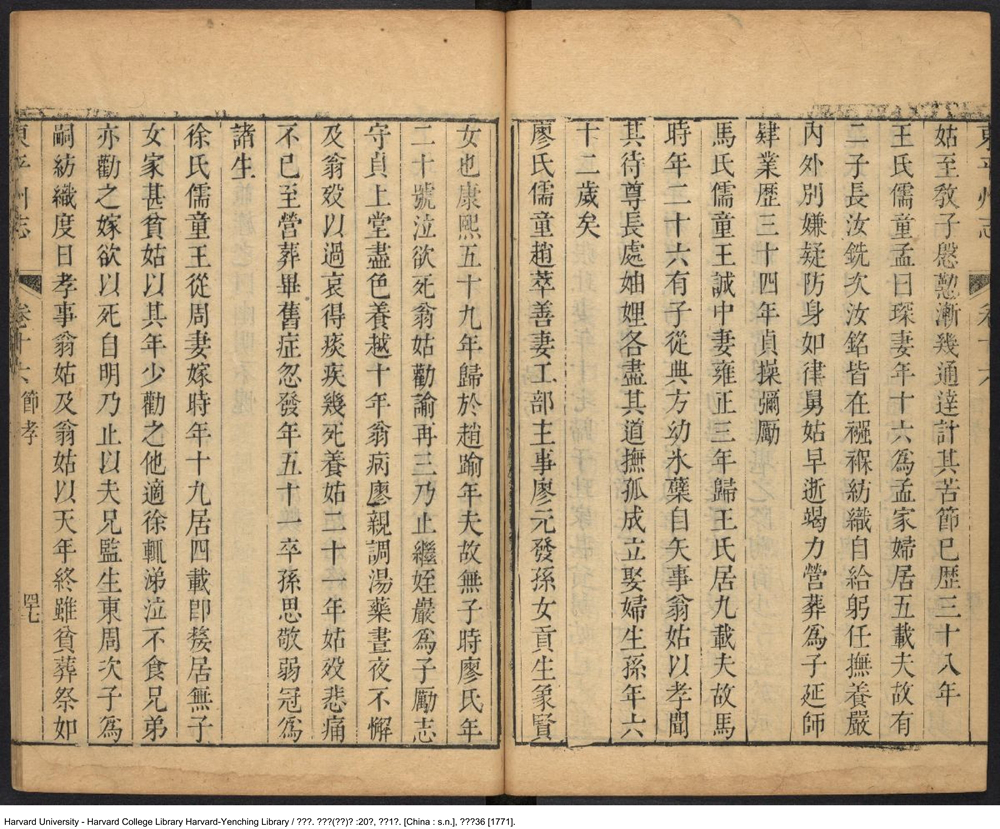 姑至敎子慇懃漸幾通達計其苦節已歷三十八年
王氏儒童孟曰琛妻年十六爲孟家婦居五載夫故有
二子長汝銑次汝銘皆在襁褓紡織自給躬任撫養嚴
內外別嫌疑防身如律舅姑早逝竭力營葬爲子延師
肄業歷三十四年貞操彌勵
馬氏儒童王誠中妻雍正三年歸王氏居九載夫故馬
時年二十六有子從典方幼氷蘗自矢事翁姑以孝聞
其待尊長處妯娌各盡其道撫孤成立娶婦生孫年六
十二歲矣
廖氏儒童趙萃善妻工部主事廖元發孫女貢生象賢
女也康熙五十九年歸於趙踰年夫故無子時廖氏年
二十號泣欲死翁姑勸諭再三乃止繼姪嚴爲子勵志
守貞上堂盡色養越十年翁病廖親調湯藥晝夜不懈
及翁歿以過哀得痰疾幾死養姑二十一年姑歿悲痛
不已至營葬畢舊症忽發年五十一卒孫思敬弱冠爲
諸生
徐氏儒童王從周妻嫁時年十九居四載卽嫠居無子
女家甚貧姑以其年少勸之他適徐輒涕泣不食兄弟
亦勸之嫁欲以死自明乃止以夫兄監生東周次子爲
嗣紡織度日孝事翁姑及翁姑以天年終雖貧葬祭如
東平州志 卷十六 節孝 四七
Harvard University - Harvard College Library Harvard-Yenching Library / ???. ???(??)? :20?, ??1?. [China : s.n.], ???36 [1771].